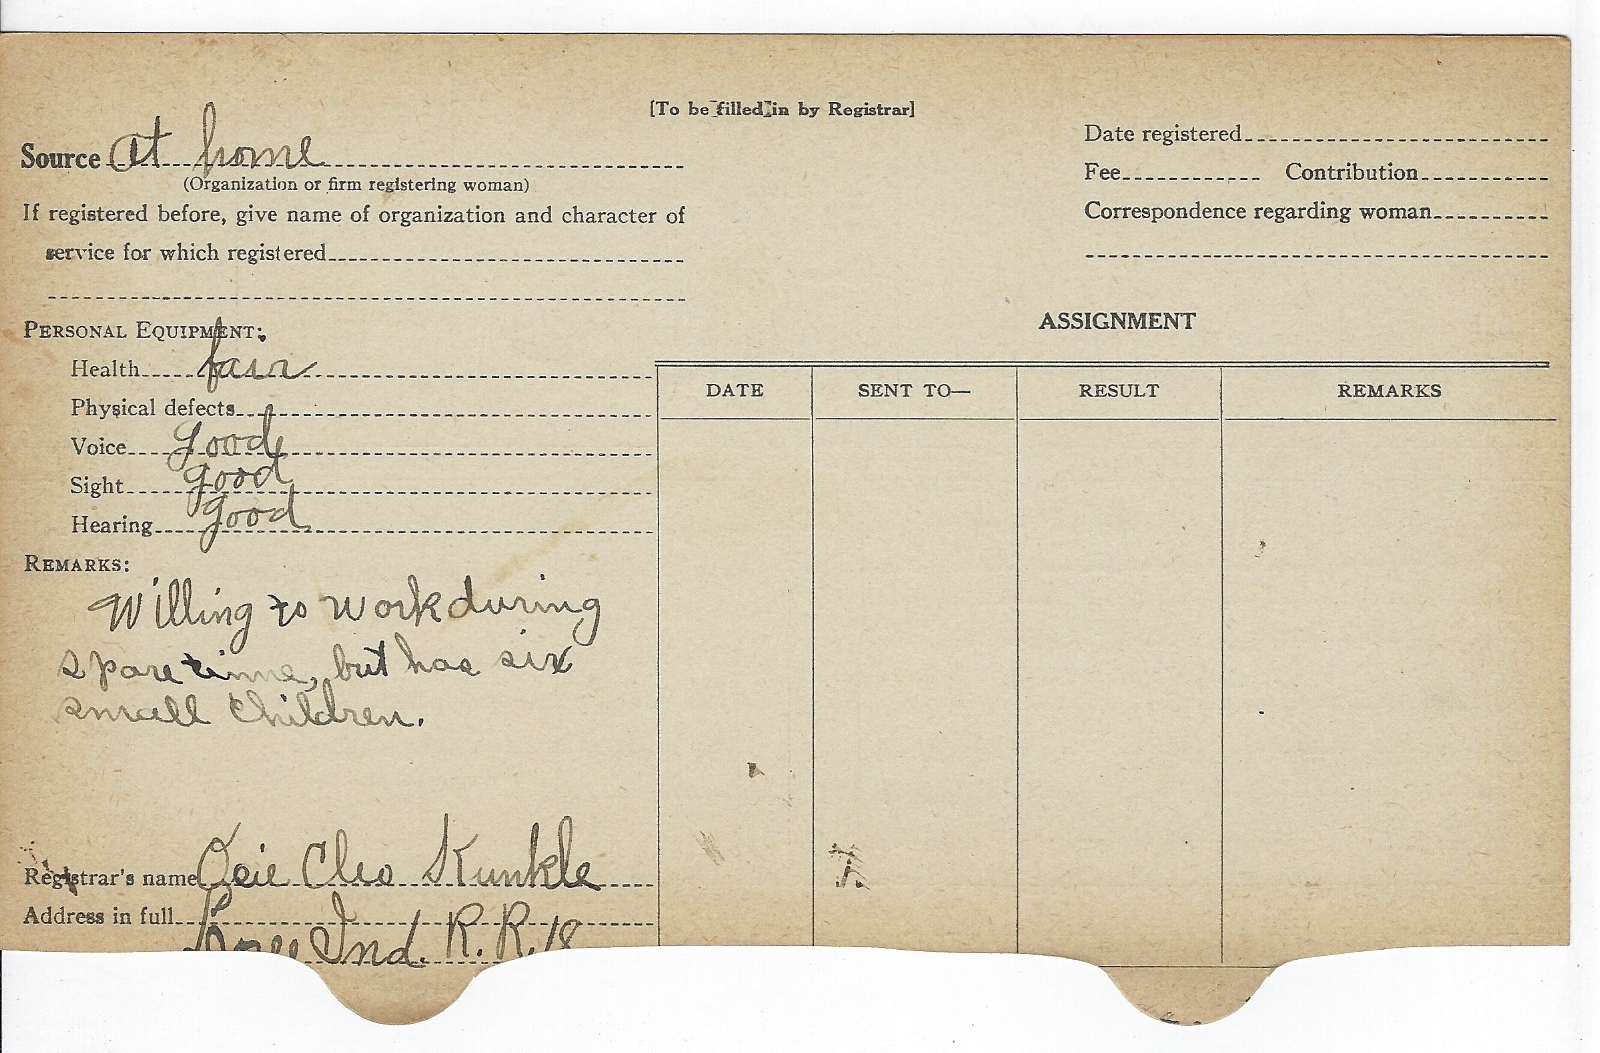 [To be filled in by Registrar]
Source At home
(Organization or firm registering woman)
If registered before, give name of organization and character of
service for which registered
Date registered
Fee Contribution
Correspondence regarding woman
PERSONAL EQUIPMENT:
Health fair
Physical defects
Voice good
Sight good
Hearing good
REMARKS:
Willing to work during
spare time, but has six
small children.
Registrar's name Osie Cleo Kunkle
Address in full
Ind. R. R. 18
ASSIGNMENT
DATE SENT TO— RESULT REMARKS